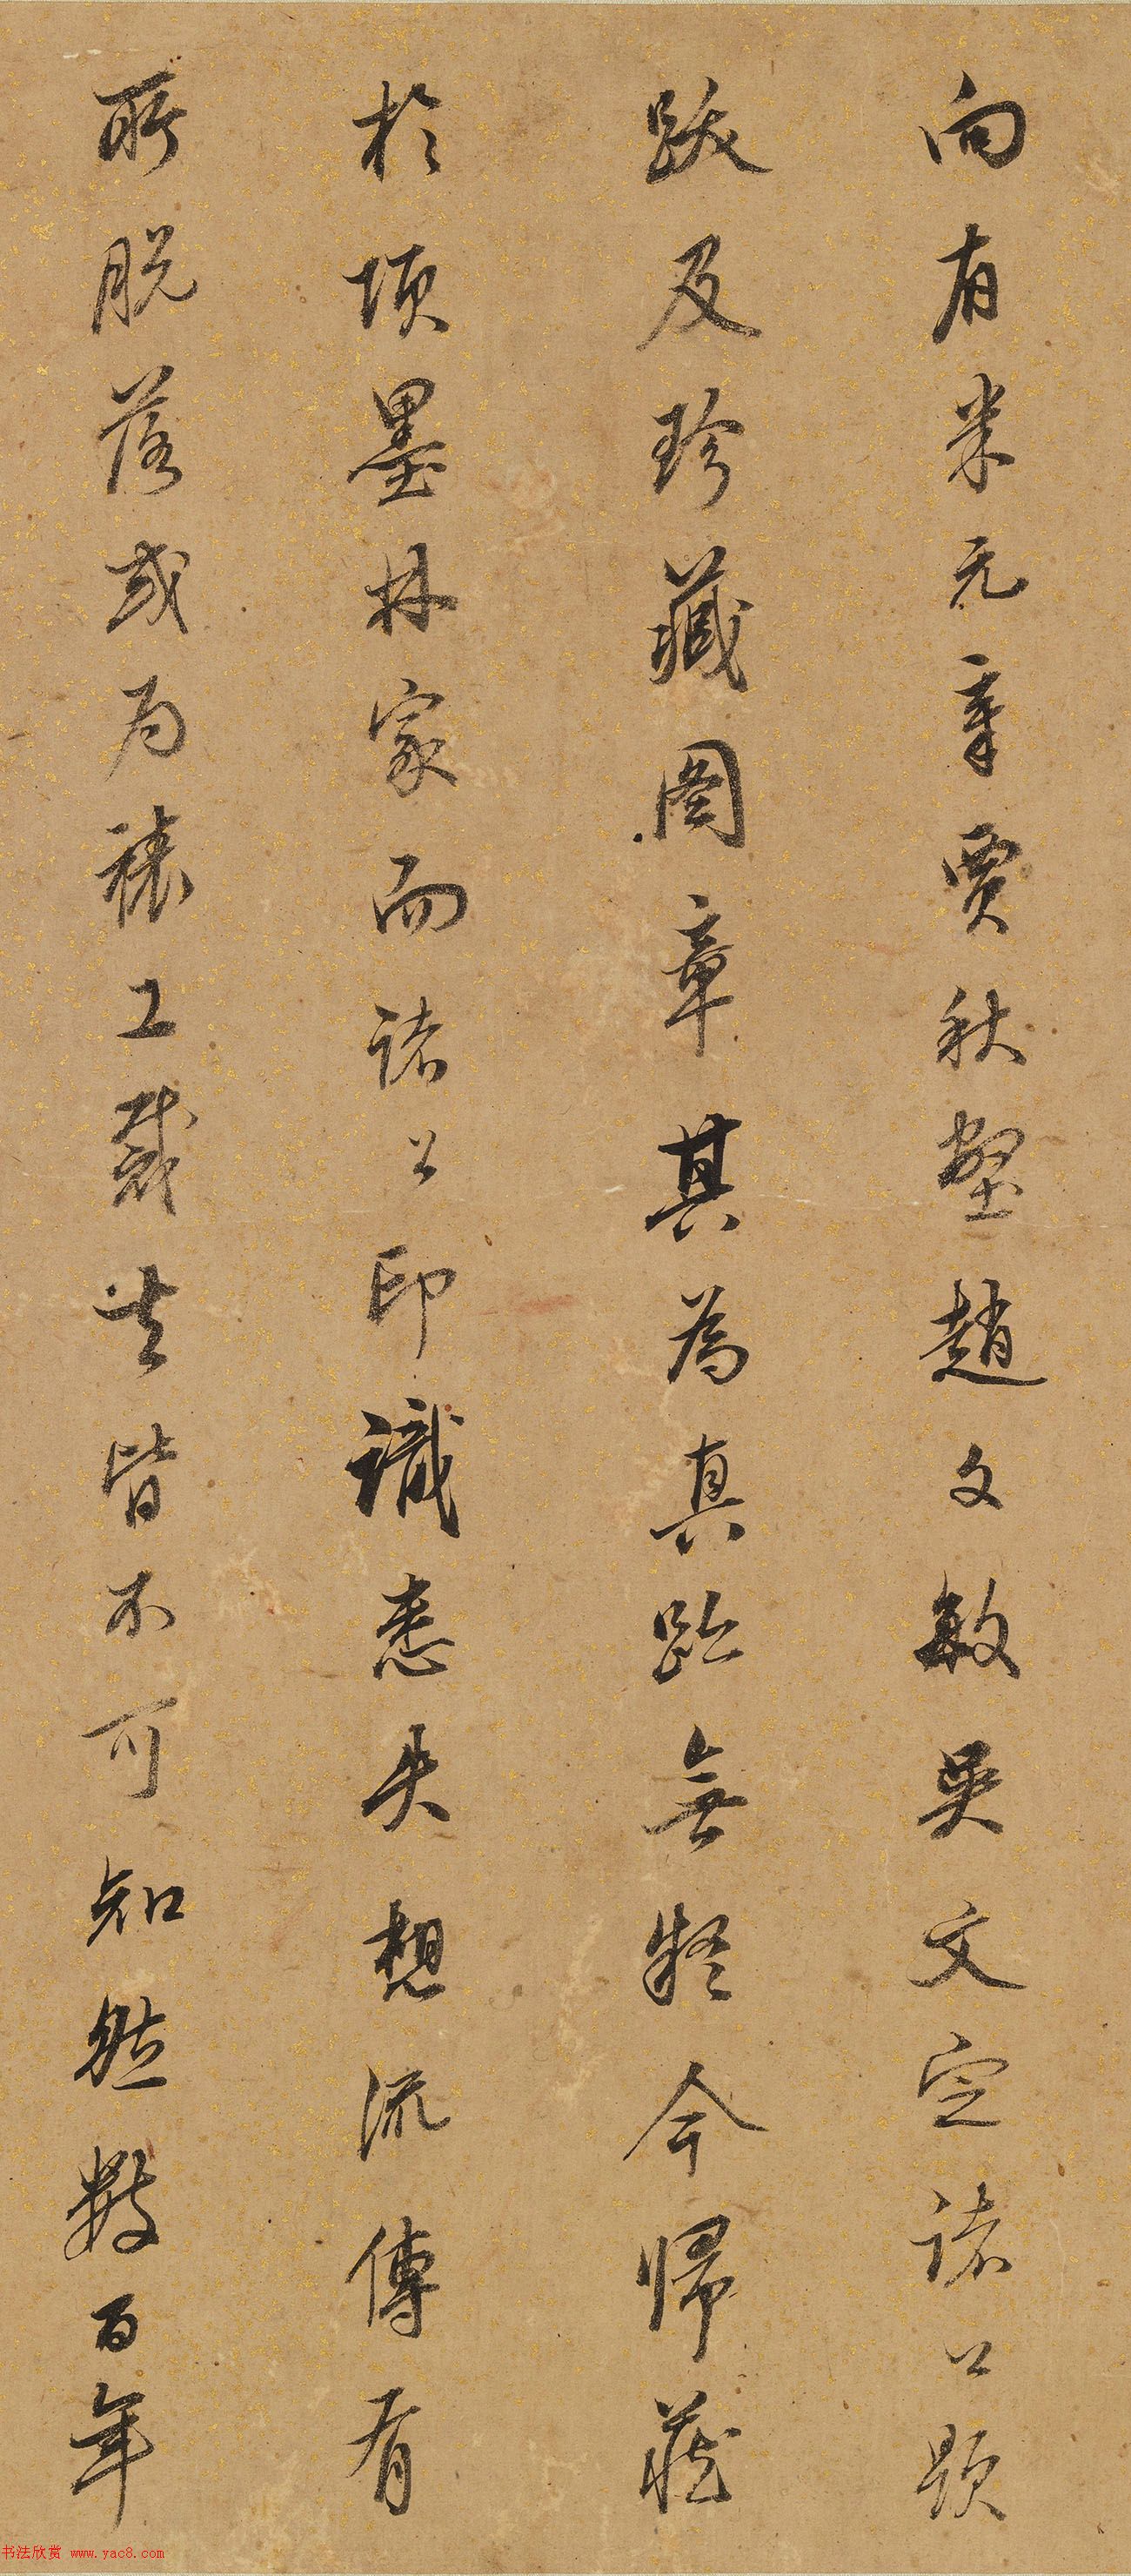 向有米元章賈秋壑趙文敏吳文定諸公題
跋及珍藏圖章其為真跡無疑今歸藏
於項墨林家而諸公印識悉失想流傳有
所脫落或為裱工裁去皆不可知然數百年
书法欣赏 www.yac8.com